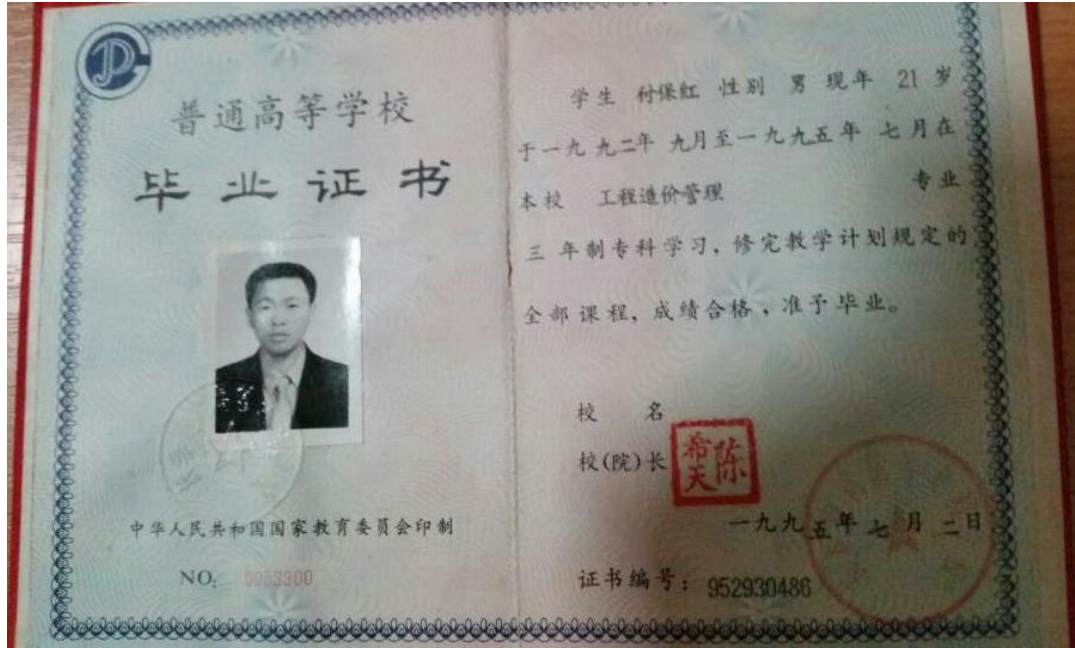 普通高等学校
毕业证书
中华人民共和国国家教育委员会印制
NO: 0053300
学生 付保红 性别 男 现年 21 岁
于一九九二年 九月至一九九五年 七月在
本校 工程造价管理 专业
三 年制专科学习,修完教学计划规定的
全部课程,成绩合格,准予毕业。
校 名
校(院)长 陈希天
一九九五年七月二日
证书编号:952930486